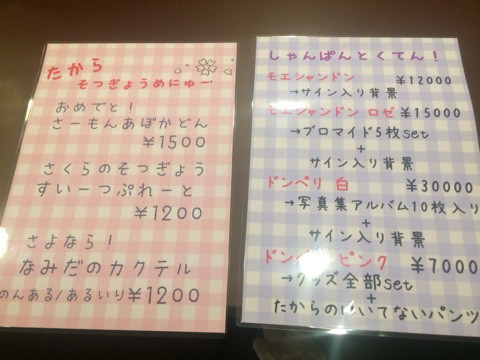 たから
そつぎょうめにゅー
おめでと！
さーもんあぼかどん
¥1500
さくらのそつぎょう
すいーつぷれーと
¥1200
さよなら！
なみだのカクテル
めんある/あるいり ¥1200
しゃんぱんとくてん！
モエシャンドン ¥12000
→サイン入り背景
モエシャンドン ロゼ ¥15000
→ブロマイド5枚set
+
サイン入り背景
ドンペリ 白 ¥30000
→写真集アルバム10枚入り
+
サイン入り背景
ドンペリ ピンク ¥7000
→グッズ全部set
+
たからのはいてないパンツ